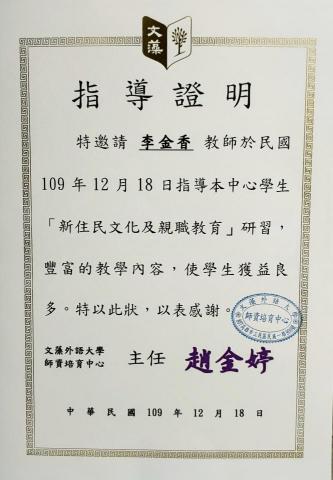 文藻
指導證明
特邀請 李金香 教師於民國
109年12月18日指導本中心學生
「新住民文化及親職教育」研習，
豐富的教學內容，使學生獲益良
多。特以此狀，以表感謝。
師資培育中心
文藻外語大學
師資培育中心 主任 趙金婷
中華民國 109 年 12 月 18 日